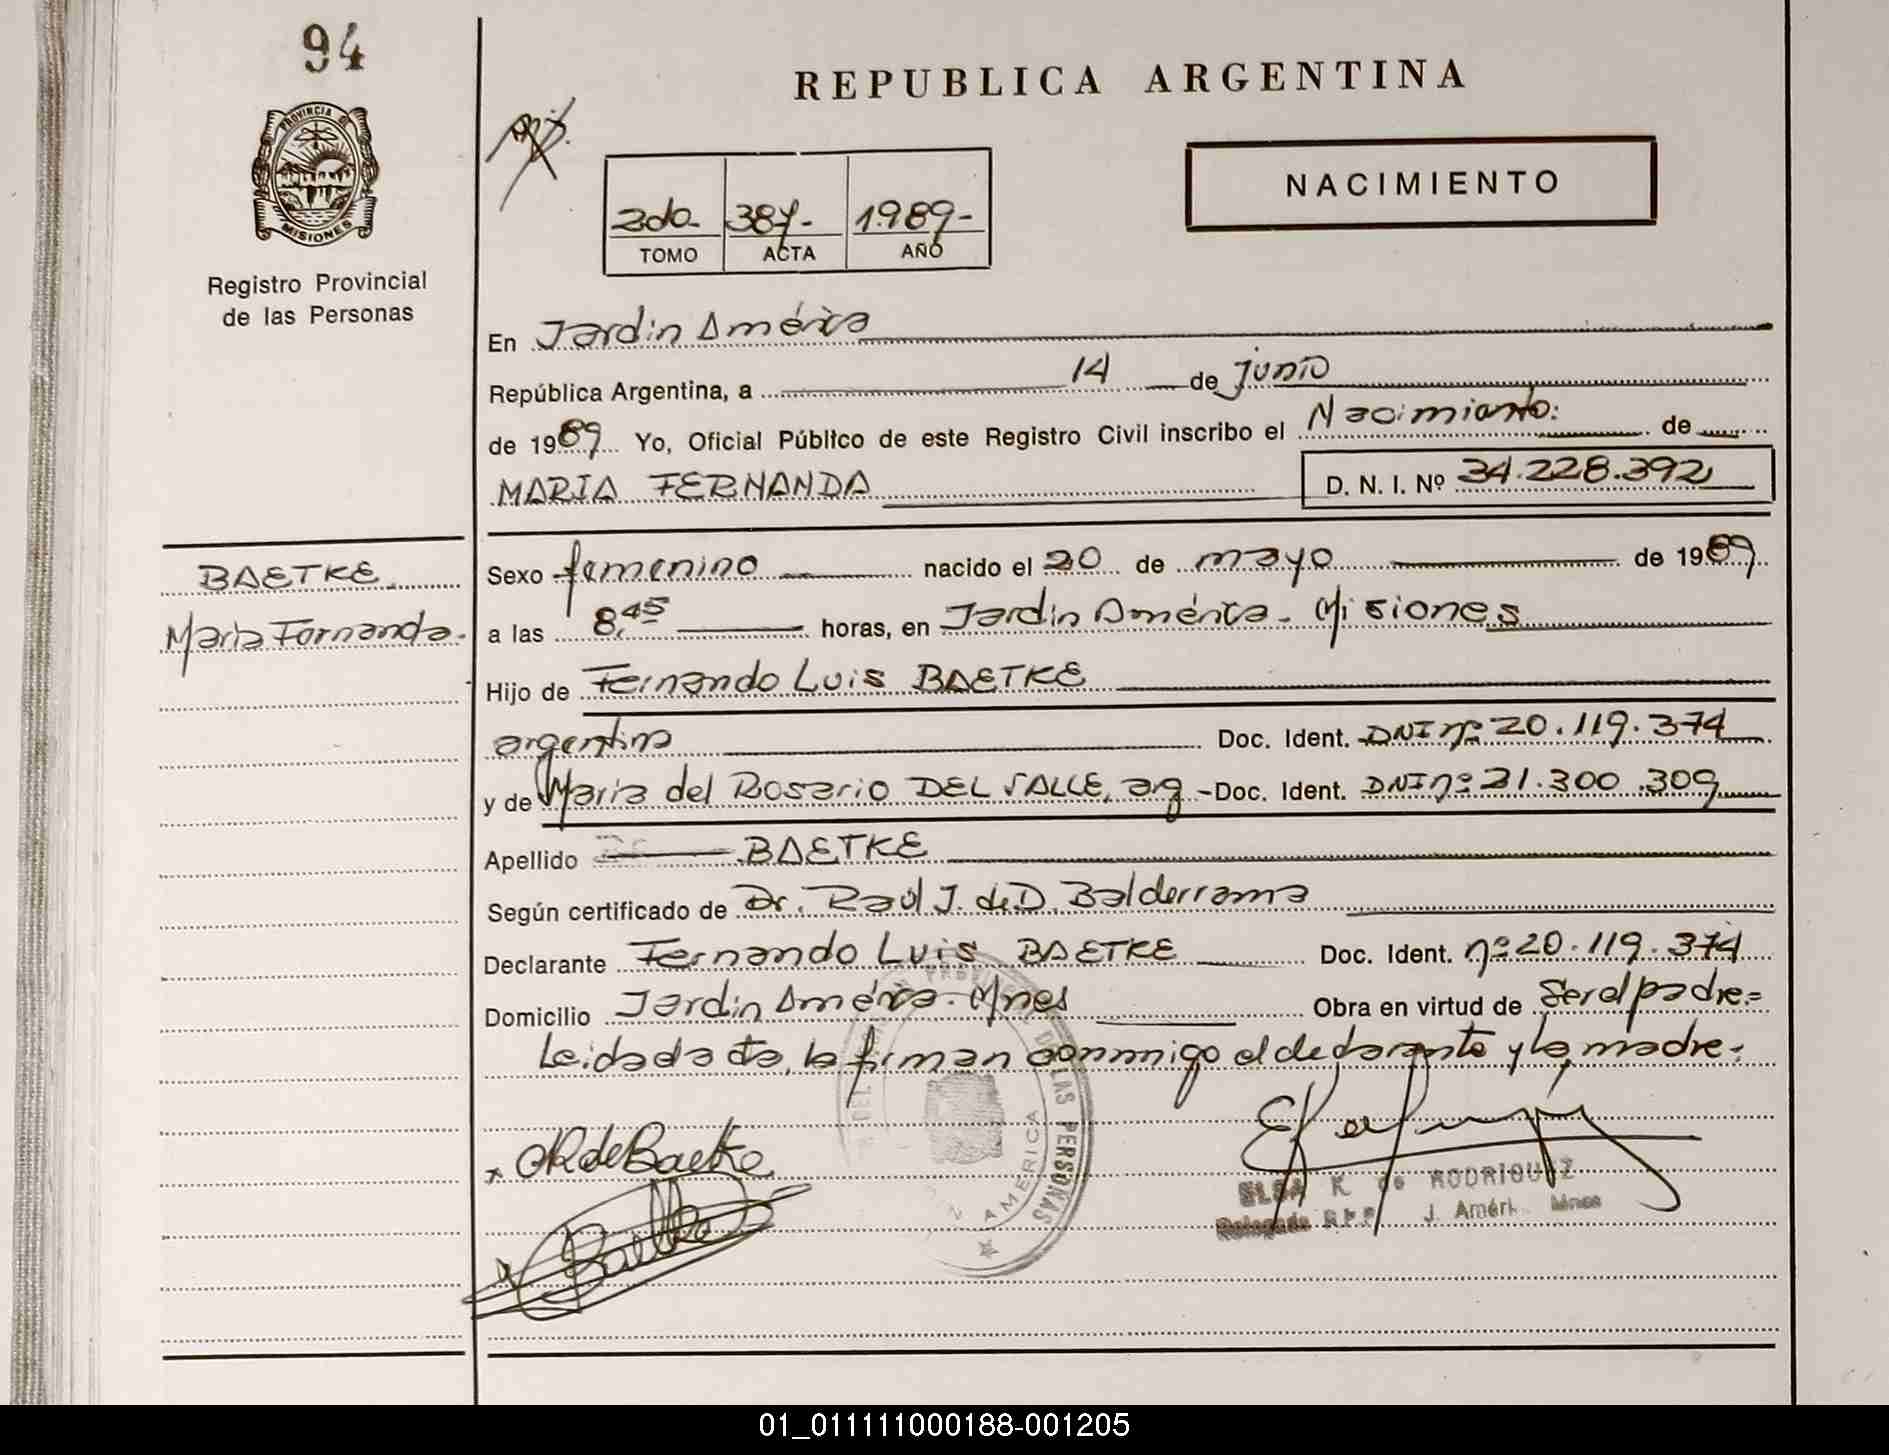 94
REPUBLICA ARGENTINA
PROVINCIA DE
MISIONES
NACIMIENTO
2do- 387- 1.989-
TOMO ACTA AÑO
Registro Provincial
de las Personas
En Jardin América
República Argentina, a 14 de junio
de 1989 Yo, Oficial Público de este Registro Civil inscribo el Nacimiento: de
MARIA FERNANDA D. N. I. Nº 34.228.392
BAETKE
Maria Fernanda.
Sexo femenino nacido el 20 de mayo de 1989
a las 8,45 horas, en Jardin América - Misiones
Hijo de Fernando Luis BAETKE
argentino Doc. Ident. DNI nº 20.119.374
y de Maria del Rosario DEL VALLE, arg - Doc. Ident. DNI nº 21.300.309
Apellido BAETKE
Según certificado de Dr. Raúl J. de D. Balderrama
Declarante Fernando Luis BAETKE Doc. Ident. nº 20.119.374
Domicilio Jardin América - Mnes Obra en virtud de Ser el padre.=
Leida da ta, la firman conmmigo el declarante y la madre.-
DE LAS PERSONAS
AMERICA
RdeBaetke
Baetke
ELSA K de RODRIGUEZ
Delegada R.P.P. J. Améri Mnes
01_011111000188-001205